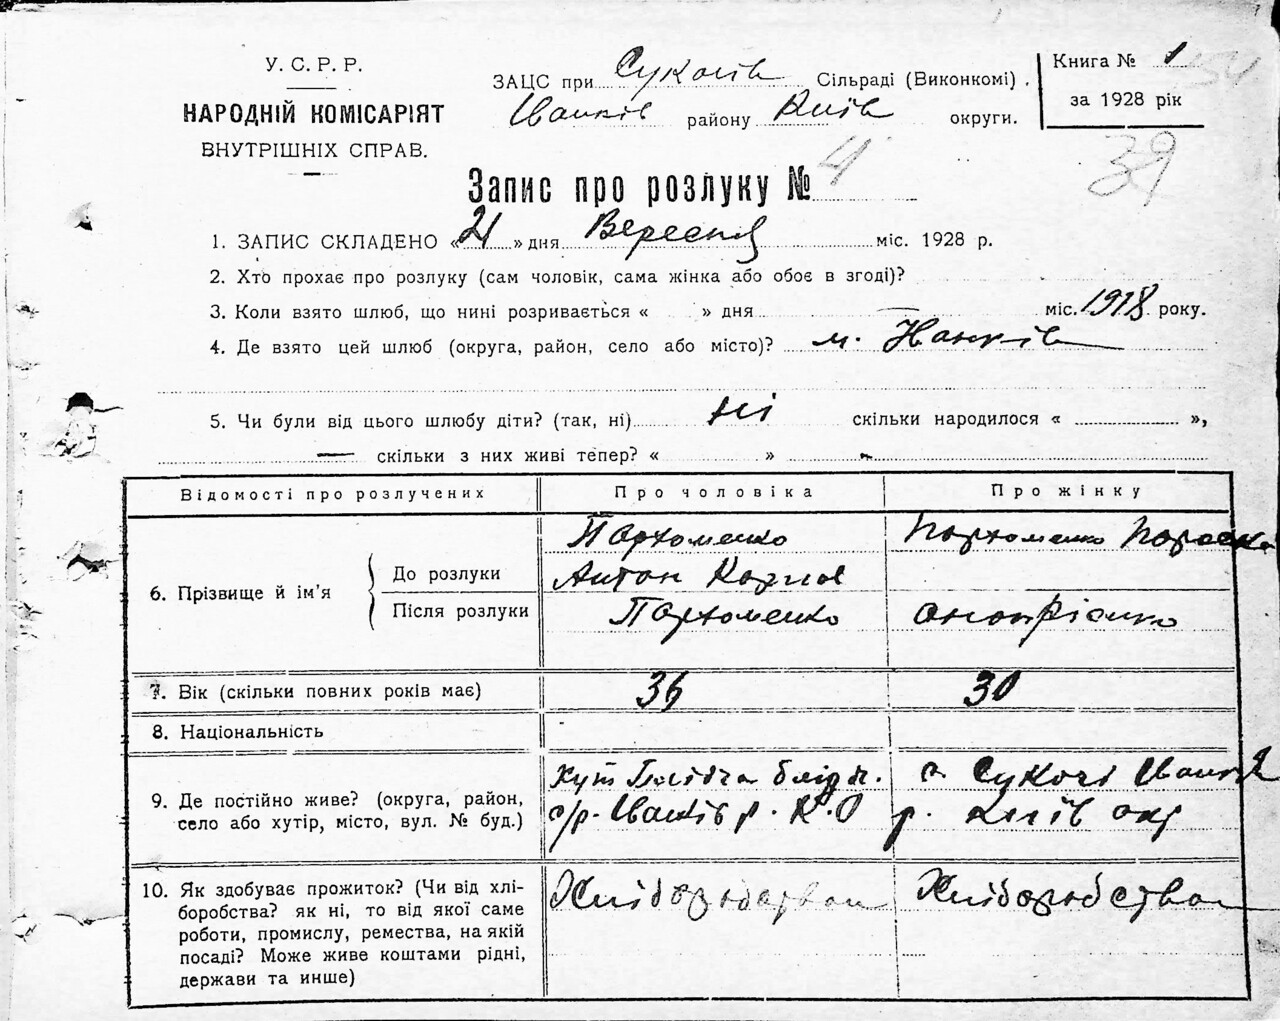 У. С. Р. Р.
НАРОДНІЙ КОМІСАРІЯТ
ВНУТРІШНІХ СПРАВ.
ЗАЦС при Сукачів Сільраді (Виконкомі).
Іванків району Київ округи.
Книга № 1
за 1928 рік
39
Запис про розлуку № 4
1. ЗАПИС СКЛАДЕНО « 21 » дня Вересня міс. 1928 р.
2. Хто прохає про розлуку (сам чоловік, сама жінка або обоє в згоді)?
3. Коли взято шлюб, що нині розривається « » дня — міс. 1918 року.
4. Де взято цей шлюб (округа, район, село або місто)? м.
5. Чи були від цього шлюбу діти? (так, ні) ні скільки народилося « »,
— скільки з них живі тепер? « » -
Відомості про розлучених Про чоловіка Про жінку
6. Прізвище й ім'я
До розлуки Пархоменко Пархоменко Параска
Антон
Після розлуки Пархоменко Онопрієнко
7. Вік (скільки повних років має) 36 30
8. Національність
9. Де постійно живе? (округа, район,
село або хутір, місто, вул. № буд.)
хут
с/р. Іванків р. К.О
с. Сукачі Іванків
р. Київ окр
10. Як здобуває прожиток? (Чи від хлі-
боробства? як ні, то від якої саме
роботи, промислу, ремества, на якій
посаді? Може живе коштами рідні,
держави та инше)
Хліборобством Хліборобством